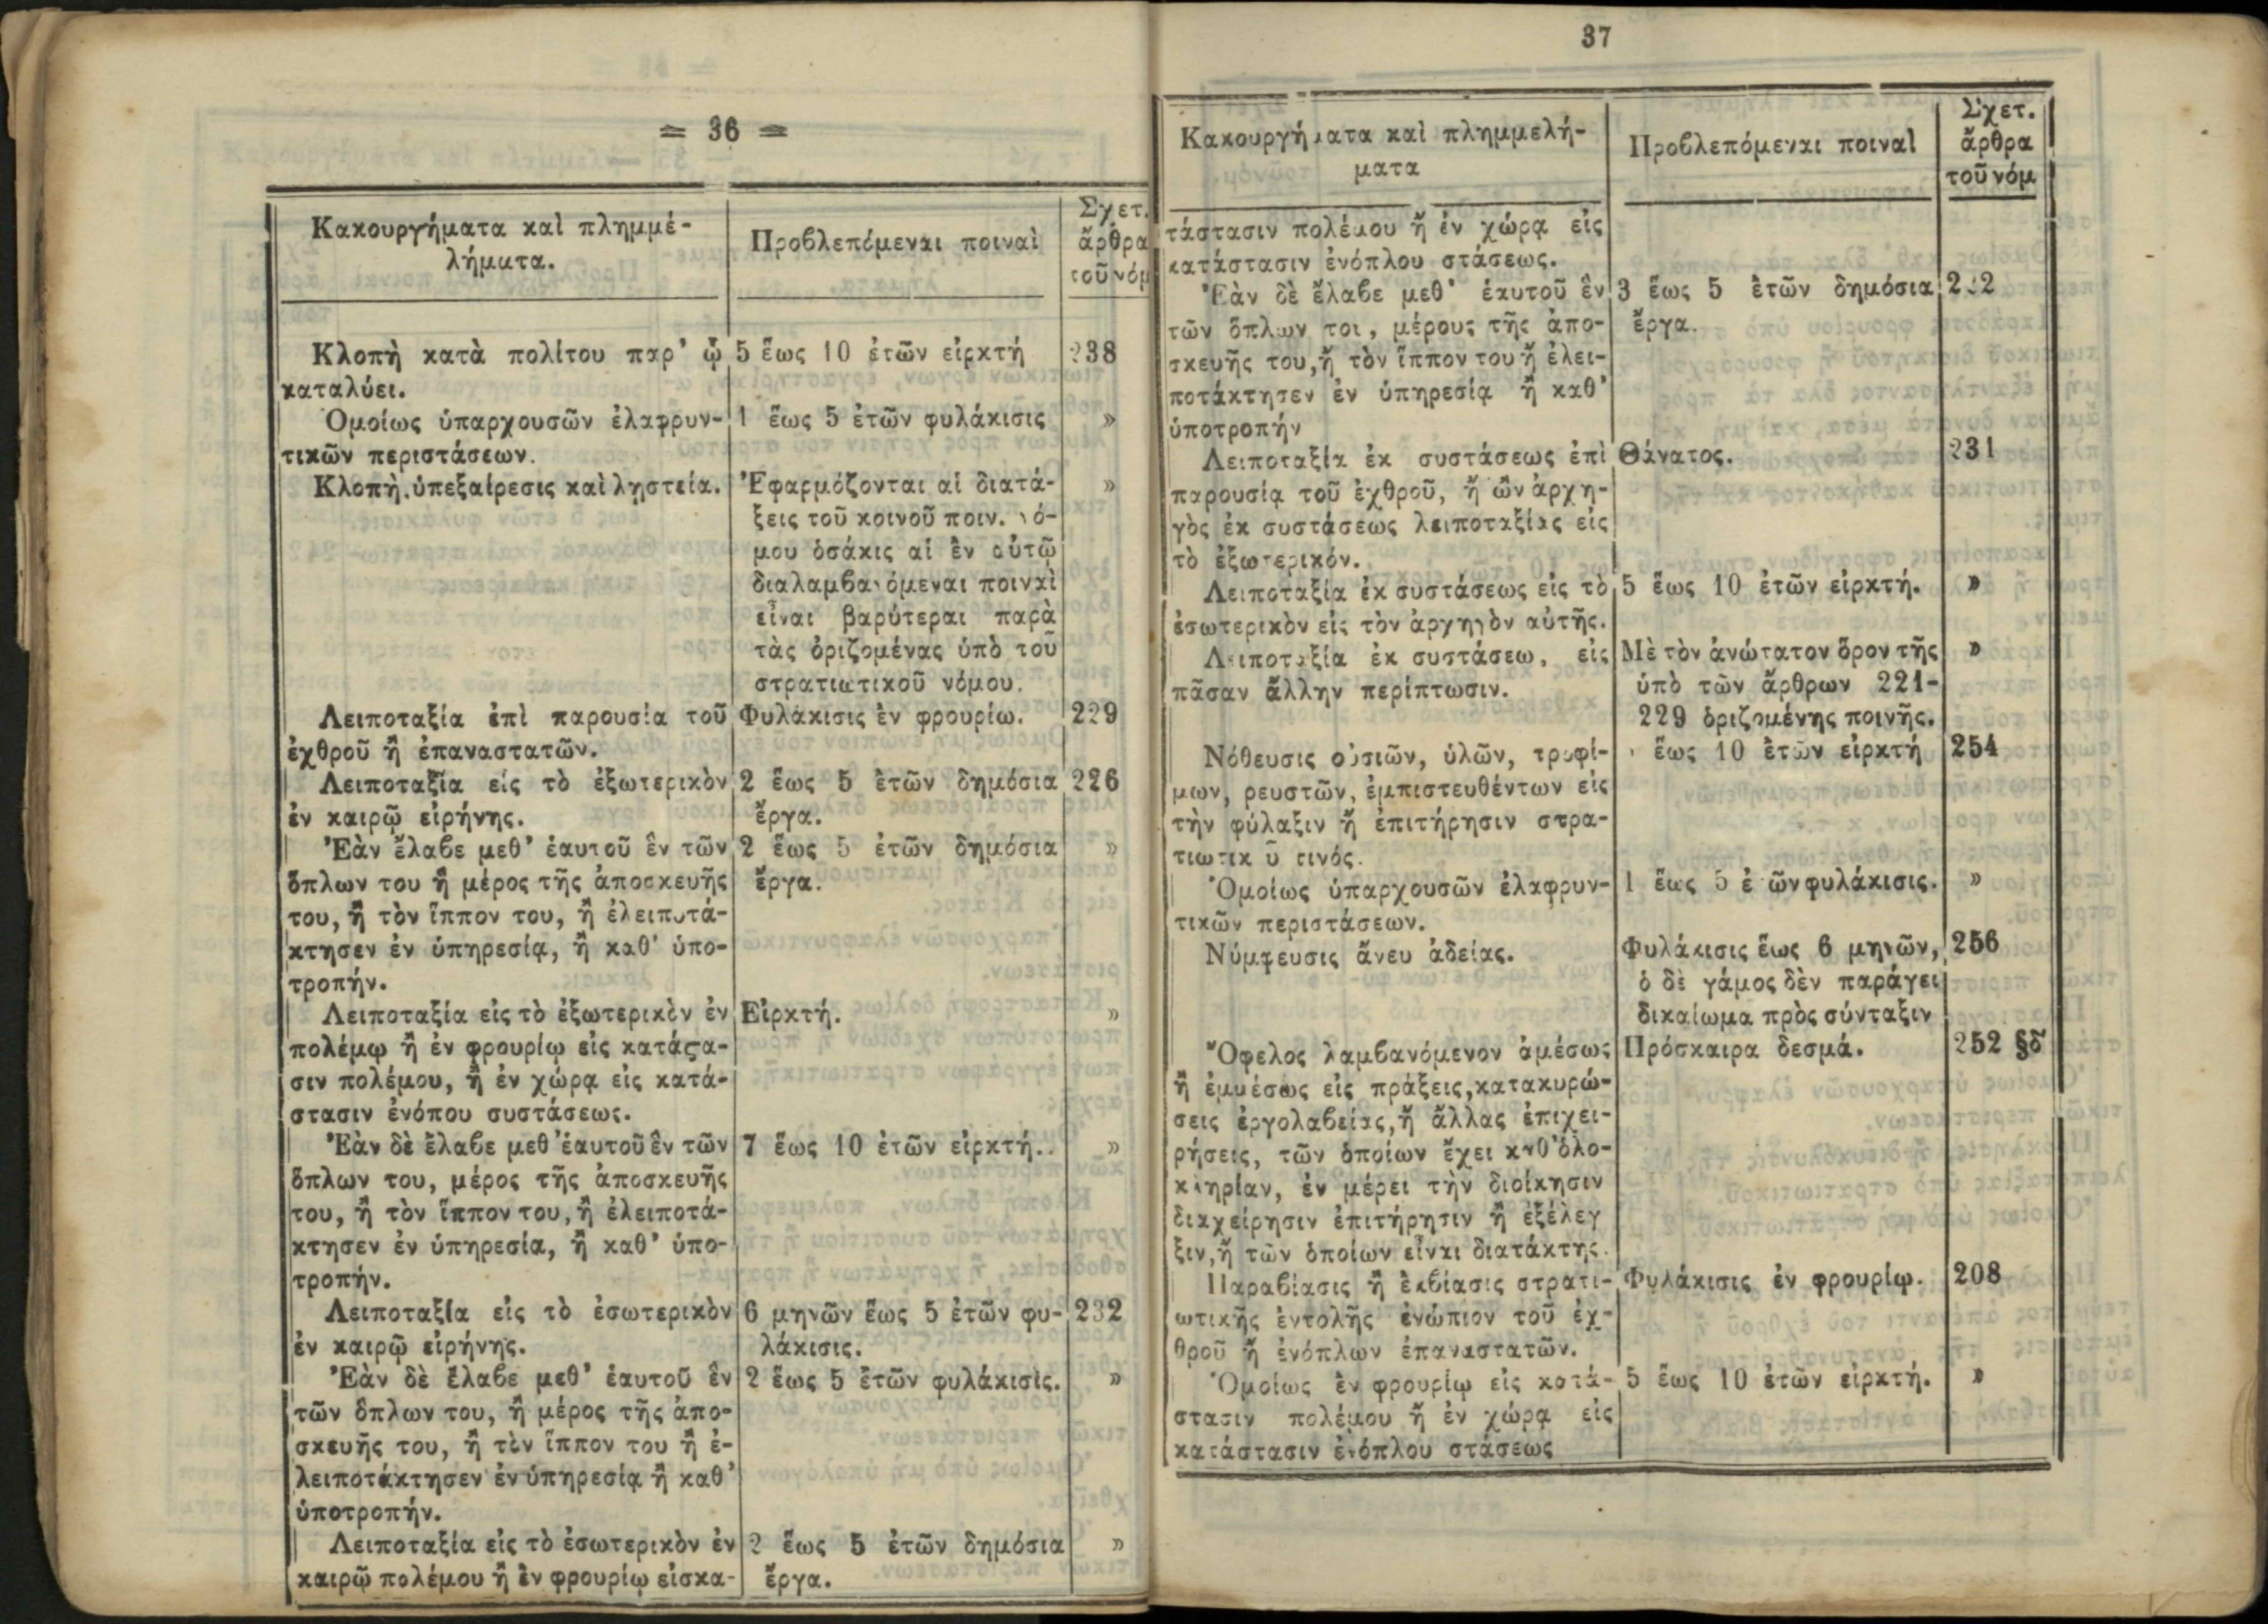 = 36 =
Κακουργήματα καὶ πλημμέ-
λήματα.
Προβλεπόμεναι ποιναὶ
Σχετ.
ἄρθρα
τοῦ νόμ
Κλοπὴ κατὰ πολίτου παρ' ᾧ
καταλύει.
5 ἕως 10 ἐτῶν εἱρκτή
238
Ὁμοίως ὑπαρχουσῶν ἐλαφρυν-
τικῶν περιστάσεων.
1 ἕως 5 ἐτῶν φυλάκισις
»
Κλοπὴ, ὑπεξαίρεσις καὶ ληστεία.
Ἐφαρμόζονται αἱ διατά-
ξεις τοῦ κοινοῦ ποιν. νό-
μου ὁσάκις αἱ ἐν αὐτῷ
διαλαμβανόμεναι ποιναὶ
εἶναι βαρύτεραι παρὰ
τὰς ὁριζομένας ὑπὸ τοῦ
στρατιωτικοῦ νόμου.
»
Λειποταξία ἐπὶ παρουσία τοῦ
ἐχθροῦ ἢ ἐπαναστατῶν.
Φυλάκισις ἐν φρουρίω.
229
Λειποταξία εἰς τὸ ἐξωτερικὸν
ἐν καιρῷ εἰρήνης.
2 ἕως 5 ἐτῶν δημόσια
ἔργα.
226
Ἐὰν ἔλαβε μεθ' ἑαυτοῦ ἓν τῶν
ὅπλων του ἢ μέρος τῆς ἀποσκευῆς
του, ἢ τὸν ἵππον του, ἢ ἐλειποτά-
κτησεν ἐν ὑπηρεσίᾳ, ἢ καθ' ὑπο-
τροπήν.
2 ἕως 5 ἐτῶν δημόσια
ἔργα.
»
Λειποταξία εἰς τὸ ἐξωτερικὸν ἐν
πολέμῳ ἢ ἐν φρουρίῳ εἰς κατάστα-
σιν πολέμου, ἢ ἐν χώρᾳ εἰς κατά-
στασιν ἐνόπου συστάσεως.
Εἱρκτή.
»
Ἐὰν δὲ ἔλαβε μεθ' ἑαυτοῦ ἓν τῶν
ὅπλων του, μέρος τῆς ἀποσκευῆς
του, ἢ τὸν ἵππον του, ἢ ἐλειποτά-
κτησεν ἐν ὑπηρεσία, ἢ καθ' ὑπο-
τροπήν.
7 ἕως 10 ἐτῶν εἱρκτή..
»
Λειποταξία εἰς τὸ ἐσωτερικὸν
ἐν καιρῷ εἰρήνης.
6 μηνῶν ἕως 5 ἐτῶν φυ-
λάκισις.
232
Ἐὰν δὲ ἔλαβε μεθ' ἑαυτοῦ ἓν
τῶν ὅπλων του, ἢ μέρος τῆς ἀπο-
σκευῆς του, ἢ τὸν ἵππον του ἢ ἐ-
λειποτάκτησεν ἐν ὑπηρεσίᾳ ἢ καθ'
ὑποτροπήν.
2 ἕως 5 ἐτῶν φυλάκισις.
»
Λειποταξία εἰς τὸ ἐσωτερικὸν ἐν
καιρῷ πολέμου ἢ ἐν φρουρίῳ εἰς κα-
2 ἕως 5 ἐτῶν δημόσια
ἔργα.
»
37
Κακουργήματα καὶ πλημμελή-
ματα
Προβλεπόμεναι ποιναὶ
Σχετ.
ἄρθρα
τοῦ νόμ
τάστασιν πολέμου ἢ ἐν χώρᾳ εἰς
κατάστασιν ἐνόπλου στάσεως.
Ἐὰν δὲ ἔλαβε μεθ' ἑαυτοῦ ἓν
τῶν ὅπλων του, μέρους τῆς ἀπο-
σκευῆς του, ἢ τὸν ἵππον του ἢ ἐλει-
ποτάκτησεν ἐν ὑπηρεσίᾳ ἢ καθ'
ὑποτροπήν
3 ἕως 5 ἐτῶν δημόσια
ἔργα.
Λειποταξία ἐκ συστάσεως ἐπὶ
παρουσίᾳ τοῦ ἐχθροῦ, ἢ ὢν ἀρχη-
γὸς ἐκ συστάσεως λειποταξίας εἰς
τὸ ἐξωτερικόν.
Θάνατος.
231
Λειποταξία ἐκ συστάσεως εἰς τὸ
ἐσωτερικὸν εἰς τὸν ἀρχηγὸν αὐτῆς.
5 ἕως 10 ἐτῶν εἱρκτή.
»
Λειποταξία ἐκ συστάσεω, εἰς
πᾶσαν ἄλλην περίπτωσιν.
Μὲ τὸν ἀνώτατον ὅρον τῆς
ὑπὸ τῶν ἄρθρων 221-
229 ὁριζομένης ποινῆς.
»
Νόθευσις οὐσιῶν, ὑλῶν, τροφί-
μων, ρευστῶν, ἐμπιστευθέντων εἰς
τὴν φύλαξιν ἢ ἐπιτήρησιν στρα-
τιωτικοῦ τινός.
ἕως 10 ἐτῶν εἱρκτή
254
Ὁμοίως ὑπαρχουσῶν ἐλαφρυν-
τικῶν περιστάσεων.
1 ἕως 5 ἐτῶν φυλάκισις.
»
Νύμφευσις ἄνευ ἀδείας.
Φυλάκισις ἕως 6 μηνῶν,
ὁ δὲ γάμος δὲν παράγει
δικαίωμα πρὸς σύνταξιν
256
Ὄφελος λαμβανόμενον ἀμέσως
ἢ ἐμμέσως εἰς πράξεις, κατακυρώ-
σεις ἐργολαβείας, ἢ ἄλλας ἐπιχει-
ρήσεις, τῶν ὁποίων ἔχει καθ' ὁλο-
κληρίαν, ἐν μέρει τὴν διοίκησιν
διαχείρησιν ἐπιτήρησιν ἢ ἐξέλεγ
ξιν, ἢ τῶν ὁποίων εἶναι διατάκτης.
Πρόσκαιρα δεσμά.
252 §δ
Παραβίασις ἢ ἐκβίασις στρατι-
ωτικῆς ἐντολῆς ἐνώπιον τοῦ ἐχ-
θροῦ ἢ ἐνόπλων ἐπαναστατῶν.
Φυλάκισις ἐν φρουρίῳ.
208
Ὁμοίως ἐν φρουρίῳ εἰς κατά-
στασιν πολέμου ἢ ἐν χώρᾳ εἰς
κατάστασιν ἐνόπλου στάσεως
5 ἕως 10 ἐτῶν εἱρκτή.
»